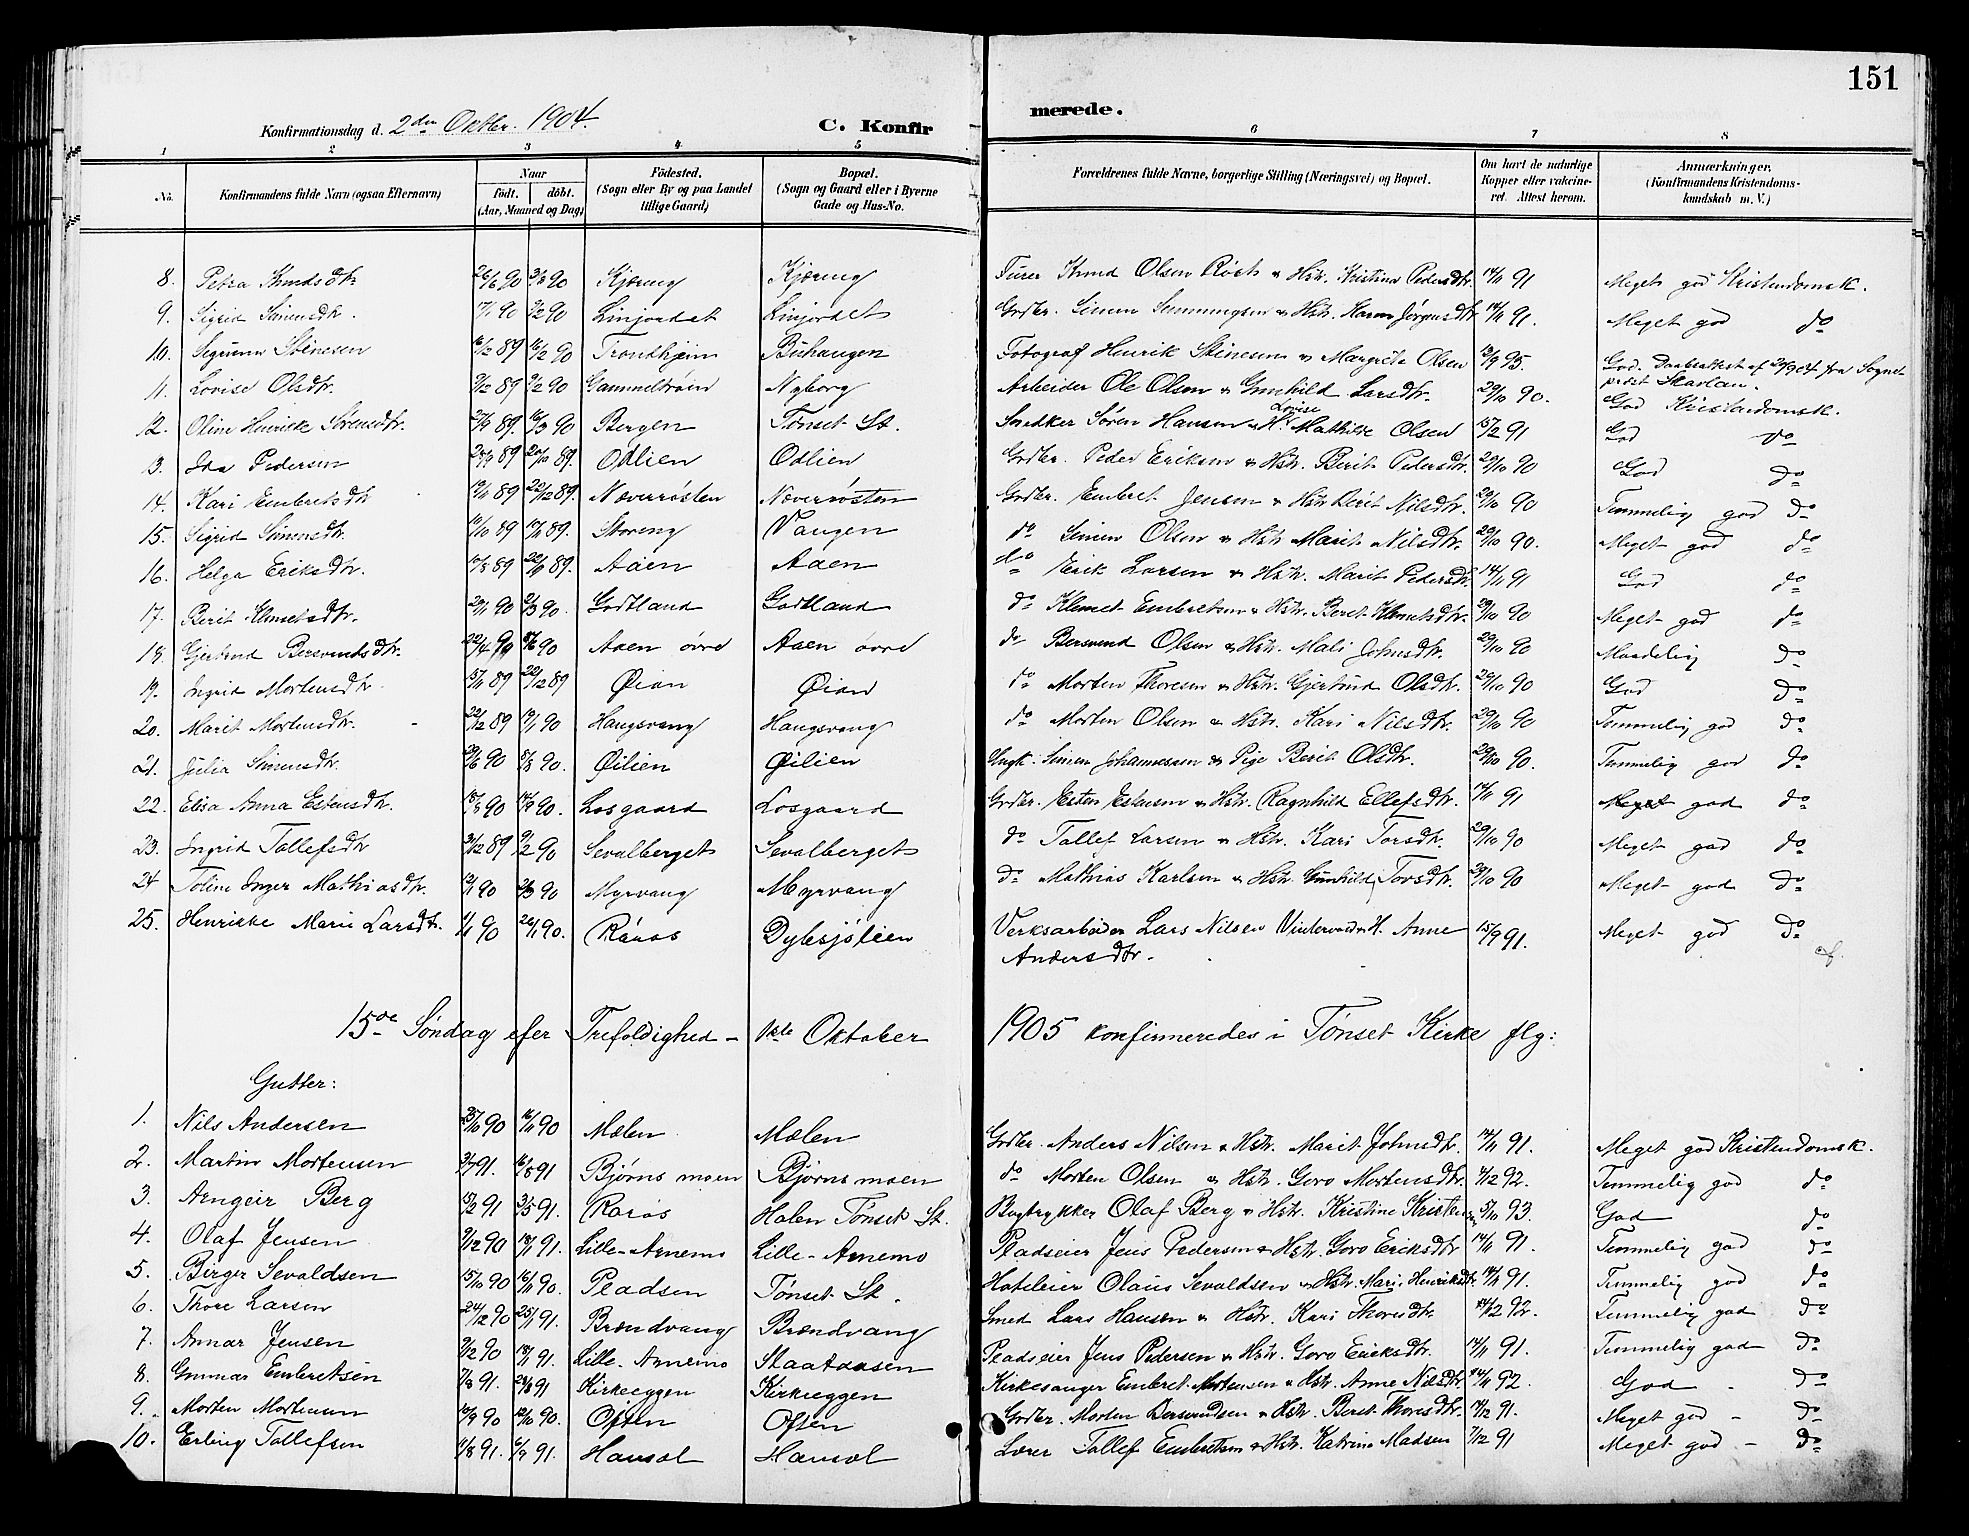 151
Konfirmationsdag d. 2den Oktbr. 1904. C. Konfirmerede.
1 2 3 4 5 6 7 8
No. Konfirmandens fulde Navn (ogsaa Efternavn) Naar født. døbt. (Aar, Maaned og Dag) Fødested. (Sogn eller By og paa Landet tillige Gaard) Bopæl. (Sogn og Gaard eller i Byerne Gade og Hus-No. Forældrenes fulde Navne, borgerlige Stilling (Næringsvei) og Bopæl. Om havt de naturlige Kopper eller vakcineret. Attest herom. Anmærkninger, (Konfirmandens Kristendomskundskab m. V.)
8. Petra Knudsdtr 26/6 90 3/8 90 Kjæreng Kjæreng Furer Knud Olsen Røst & Hstr. Kristine Pedersdtr. 14/11 91 Meget god Kristendomsk.
9. Sigrid Simensdtr. 17/1 90 2/2 90 Linjordet Linjordet Grdbr. Simen Semmingsen & Hstr. Karen Jørgensdtr 14/11 91. Meget god do
10. Sigrunn Stenesen 16/12 89 16/2 90 Trondhjem Bushaugen Fotograf Henrik Stenesen & Margrete Olsen 13/9 95. God. Daabsattest af 20/9 04 fra Sogneprest
11. Lovise Olsdtr. 2/12 89 2/2 90 Gammeltrøen Nyborg Arbeider Ole Olsen & Gunhild Larsdtr. 29/10 90. God Kristendomsk.
12. Oline Henrikke Sørensdtr. 27/9 89. 16/3 90 Bergen Tønset St. Snekker Søren Hansen & H. Lovise Mathilde Olsen 15/2 91 God do
13. Ida Pedersen 24/9 89 20/10 89. Odlien Odlien Grdbr. Peder Eriksen & Hstr. Berit Pedersdtr. 29/10 90 God do
14. Kari Embretsdtr 19/11 89 22/12 89. Næverrøsten Næverrøsten Grdbr. Embret Jensen & Hstr Berit Nilsdtr. 29/10 90 Temmelig god do
15. Sigrid Simensdtr. 10/10 89 17/11 89. Storeng Vangen do Simen Olsen & Hstr. Marit Nilsdtr. 29/10 90. Meget god do
16. Helga Eriksdtr. 17/8 89 22/9 89. Aaen Aaen do Erik Larsen & Hstr. Marit Pedersdtr. 14/11 91 God do
17. Berit Klemetsdtr. 20/1 90 2/3 90. Godtland Godtland do Klemet Embretsen & Hstr. Beret Klemetsdtr. 29/10 90 Meget god do
18. Gjertrud Bersvendsdtr. 22/4 90 8/6 90 Aaen øvre Aaen øvre do Bersvend Olsen & Hstr. Mali Johnsdtr. 29/10 90 Maadelig do
19. Ingrid Mortensdtr. 15/11 89 22/12 89 Øian Øian do Morten Thoresen & Hstr. Gjertrud Olsdtr. 29/10 90 God do
20. Marit Mortensdtr. 22/12 89 19/1 90 Haugsvang Haugsvang do Morten Olsen & Hstr. Kari Nilsdtr. 29/10 90 Temmelig god do
21. Julia Simensdtr. 29/6 90 8/8 90. Øilien Øilien Ungk. Simen Johannesen & Pige Berit Olsdtr. 29/10 90. Temmelig god do
22. Elisa Anna Estensdtr. 18/8 90 14/9 90. Losgaard Losgaard Grdbr. Esten Estensen & Hstr. Ragnhild Ellefsdtr. 14/11 91 Meget god do
23. Ingrid Tollefsdtr 31/12 89 9/2 90 Sevalberget Sevalberget do Tollef Larsen & Hstr. Kari Torsdtr. 29/10 90 Meget god do
24 Toline Inger Mathiasdtr. 12/1 90 2/3 90 Myrvang Myrvang do Mathias Karlsen & Hstr. Gunhild Torsdtr. 29/10 90 Meget god do
25. Henrikke Marie Larsdtr. 1/1 90 26/1 90. Røros Dylesjølien Verksarbeider Lars Nilsen Vintervold & H. Anne 15/9 91. Meget god do
Andersdtr.
15de Søndag efer Trefoldighed – 1ste Oktober 1905 konfirmeredes i Tønset Kirke flg:
Gutter:
1. Nils Andersen 25/10 90 16/11 90 Mælen Mælen Grdbr. Anders Nilsen & Hstr. Marit Johnsdtr. 14/11 91. Meget god Kristendomsk.
2. Martin Mortensen 3/7 91. 16/8 91 Bjørnsmoen Bjørnsmoen do Morten Olsen & Hstr. Goro Mortensdtr. 4/12 92. Temmelig god do
3. Arngeir Berg 15/2 91 3/5 91. Røros Holen Tønset St. Bogtrykker Olaf Berg & Hstr. Kristine Kristensen 5/10 93. God do
4. Olaf Jensen 9/12 90 18/1 91. Lille-Arnemo Lille-Arnemo Pladseier Jens Pedersen & Hstr. Goro Eriksdtr 14/11 91. Temmelig god do
5. Birger Sevaldsen 15/10 90 16/11 90. Pladsen Tønset St. Hoteleier Olaus Sevaldsen & Hstr. Mari Henriksdtr. 14/11 91. Temmelig god do
6. Thore Larsen 24/12 90 25/1 91. Brændvang Brændvang Smed Lars Hansen & Hstr. Kari Thoresdtr. 14/12 92. Temmelig god do
7. Annar Jensen 9/12 90 18/1 91. Lille-Arnemo Staataasen Pladseier Jens Pedersen & Hstr. Goro Eriksdtr. 14/11 91. Temmelig god do
8. Gunnar Embretsen 7/8 91. 24/8 91 Kirkeeggen Kirkeeggen Kirkesanger Embret Mortensen & Hstr. Anne Nilsdtr. 14/11 92. God do
9. Morten Mortensen 10/9 90 12/10 90. Often Often Grdbr. Morten Bersvendsen & Hstr. Beret Thoresdtr. 14/12 91. Meget god – do
10. Erling Tollefsen 11/8 91. 6/9 91. Hansol Hansol Lærer Tollef Embretsen & Hstr. Katrine Madsen 7/12 91 Meget god – do